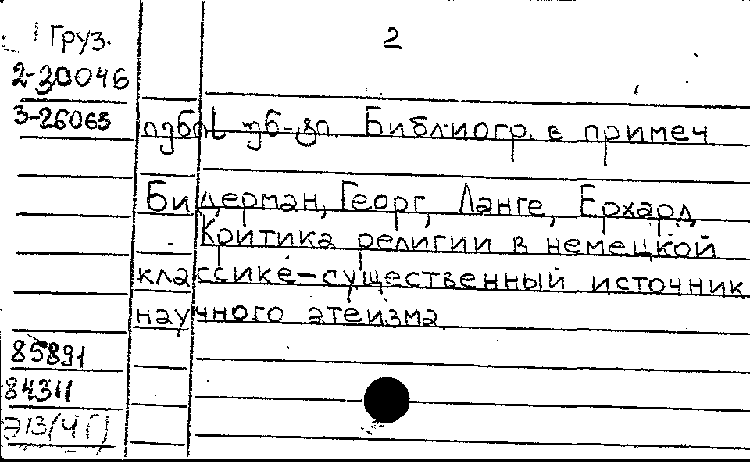 Груз.
2
2-30046
3-26065
Библиогр. в примеч
Бидерман, Георг, Ланге, Ерхард
Критика религии в немецкой
классике-существенный источник
научного атеизма
85891
84311